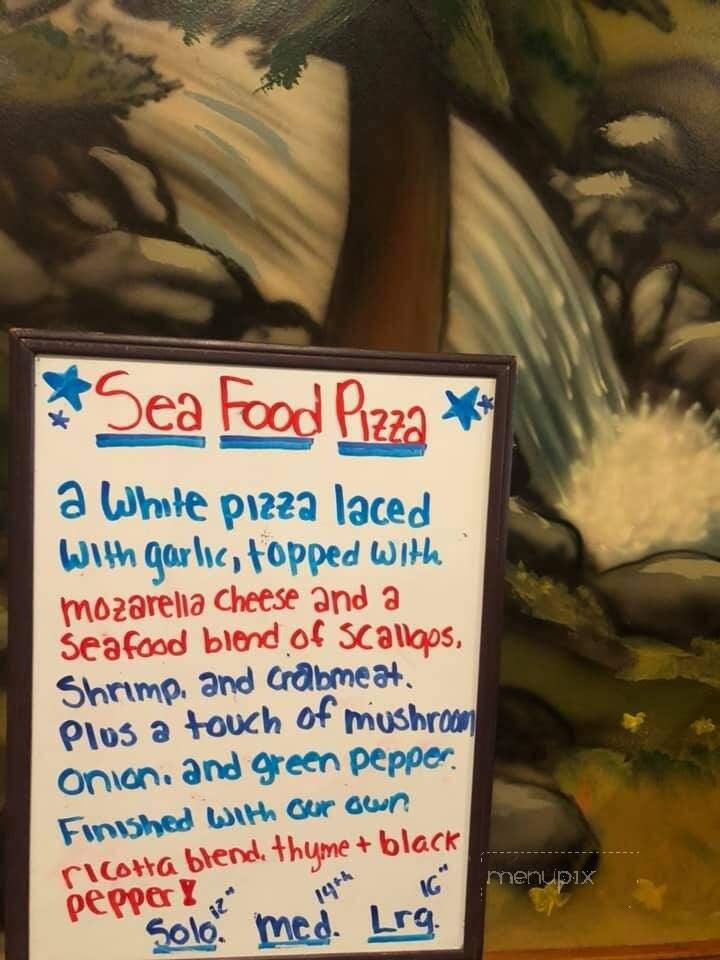 Sea Food Pizza
a White pizza laced
with garlic, topped with
mozarella cheese and a
seafood blend of scallops,
Shrimp, and crabmeat.
Plus a touch of mushroom
onion, and green pepper.
Finished with our own
ricotta blend, thyme + black
pepper!
12" 14th 16"
Solo. med. Lrg.
menupix